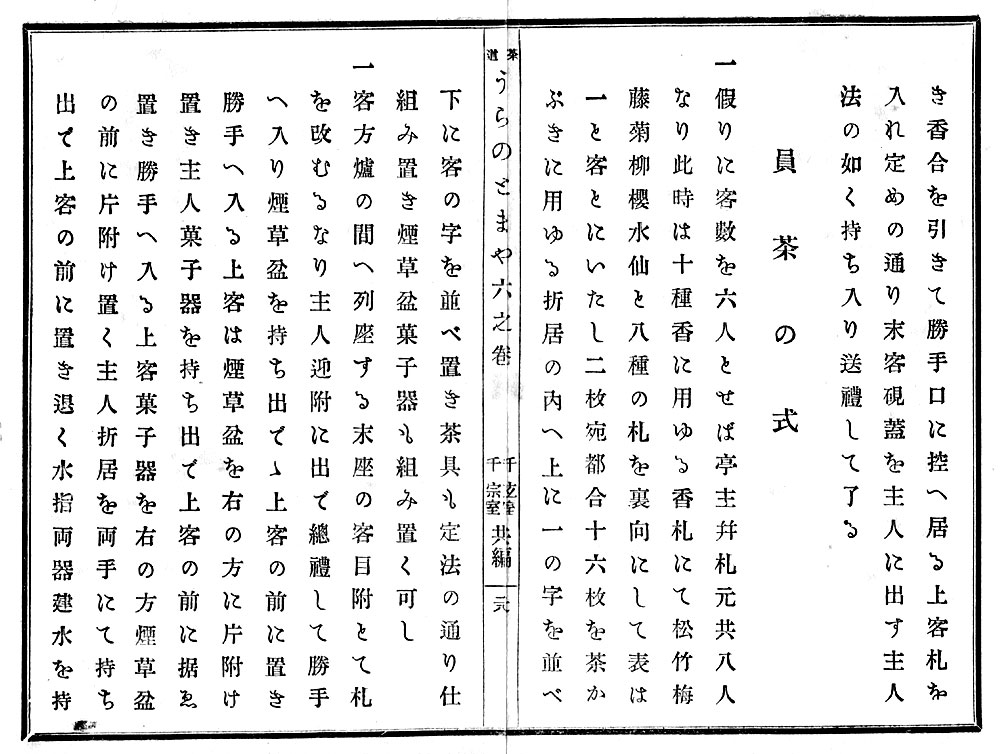 き香合を引きて勝手口に控へ居る上客札を
入れ定めの通り末客硯蓋を主人に出す主人
法の如く持ち入り送禮して了る
員茶の式
一假りに客數を六人とせば亭主幷札元共八人
なり此時は十種香に用ゆる香札にて松竹梅
藤菊柳櫻水仙と八種の札を裏向にして表は
一と客とにいたし二枚宛都合十六枚を茶か
ぶきに用ゆる折居の内へ上に一の字を並べ
茶道
うらのとまや六之卷
千玄室
千宗室
共編
元
下に客の字を並べ置き茶具も定法の通り仕
組み置き煙草盆菓子器も組み置く可し
一客方爐の間へ列座する末座の客目附とて札
を改むるなり主人迎附に出で總禮して勝手
へ入り煙草盆を持ち出でゝ上客の前に置き
勝手へ入る上客は煙草盆を右の方に片附け
置き主人菓子器を持ち出で上客の前に据ゑ
置き勝手へ入る上客菓子器を右の方煙草盆
の前に片附け置く主人折居を両手にて持ち
出で上客の前に置き退く水指両器建水を持